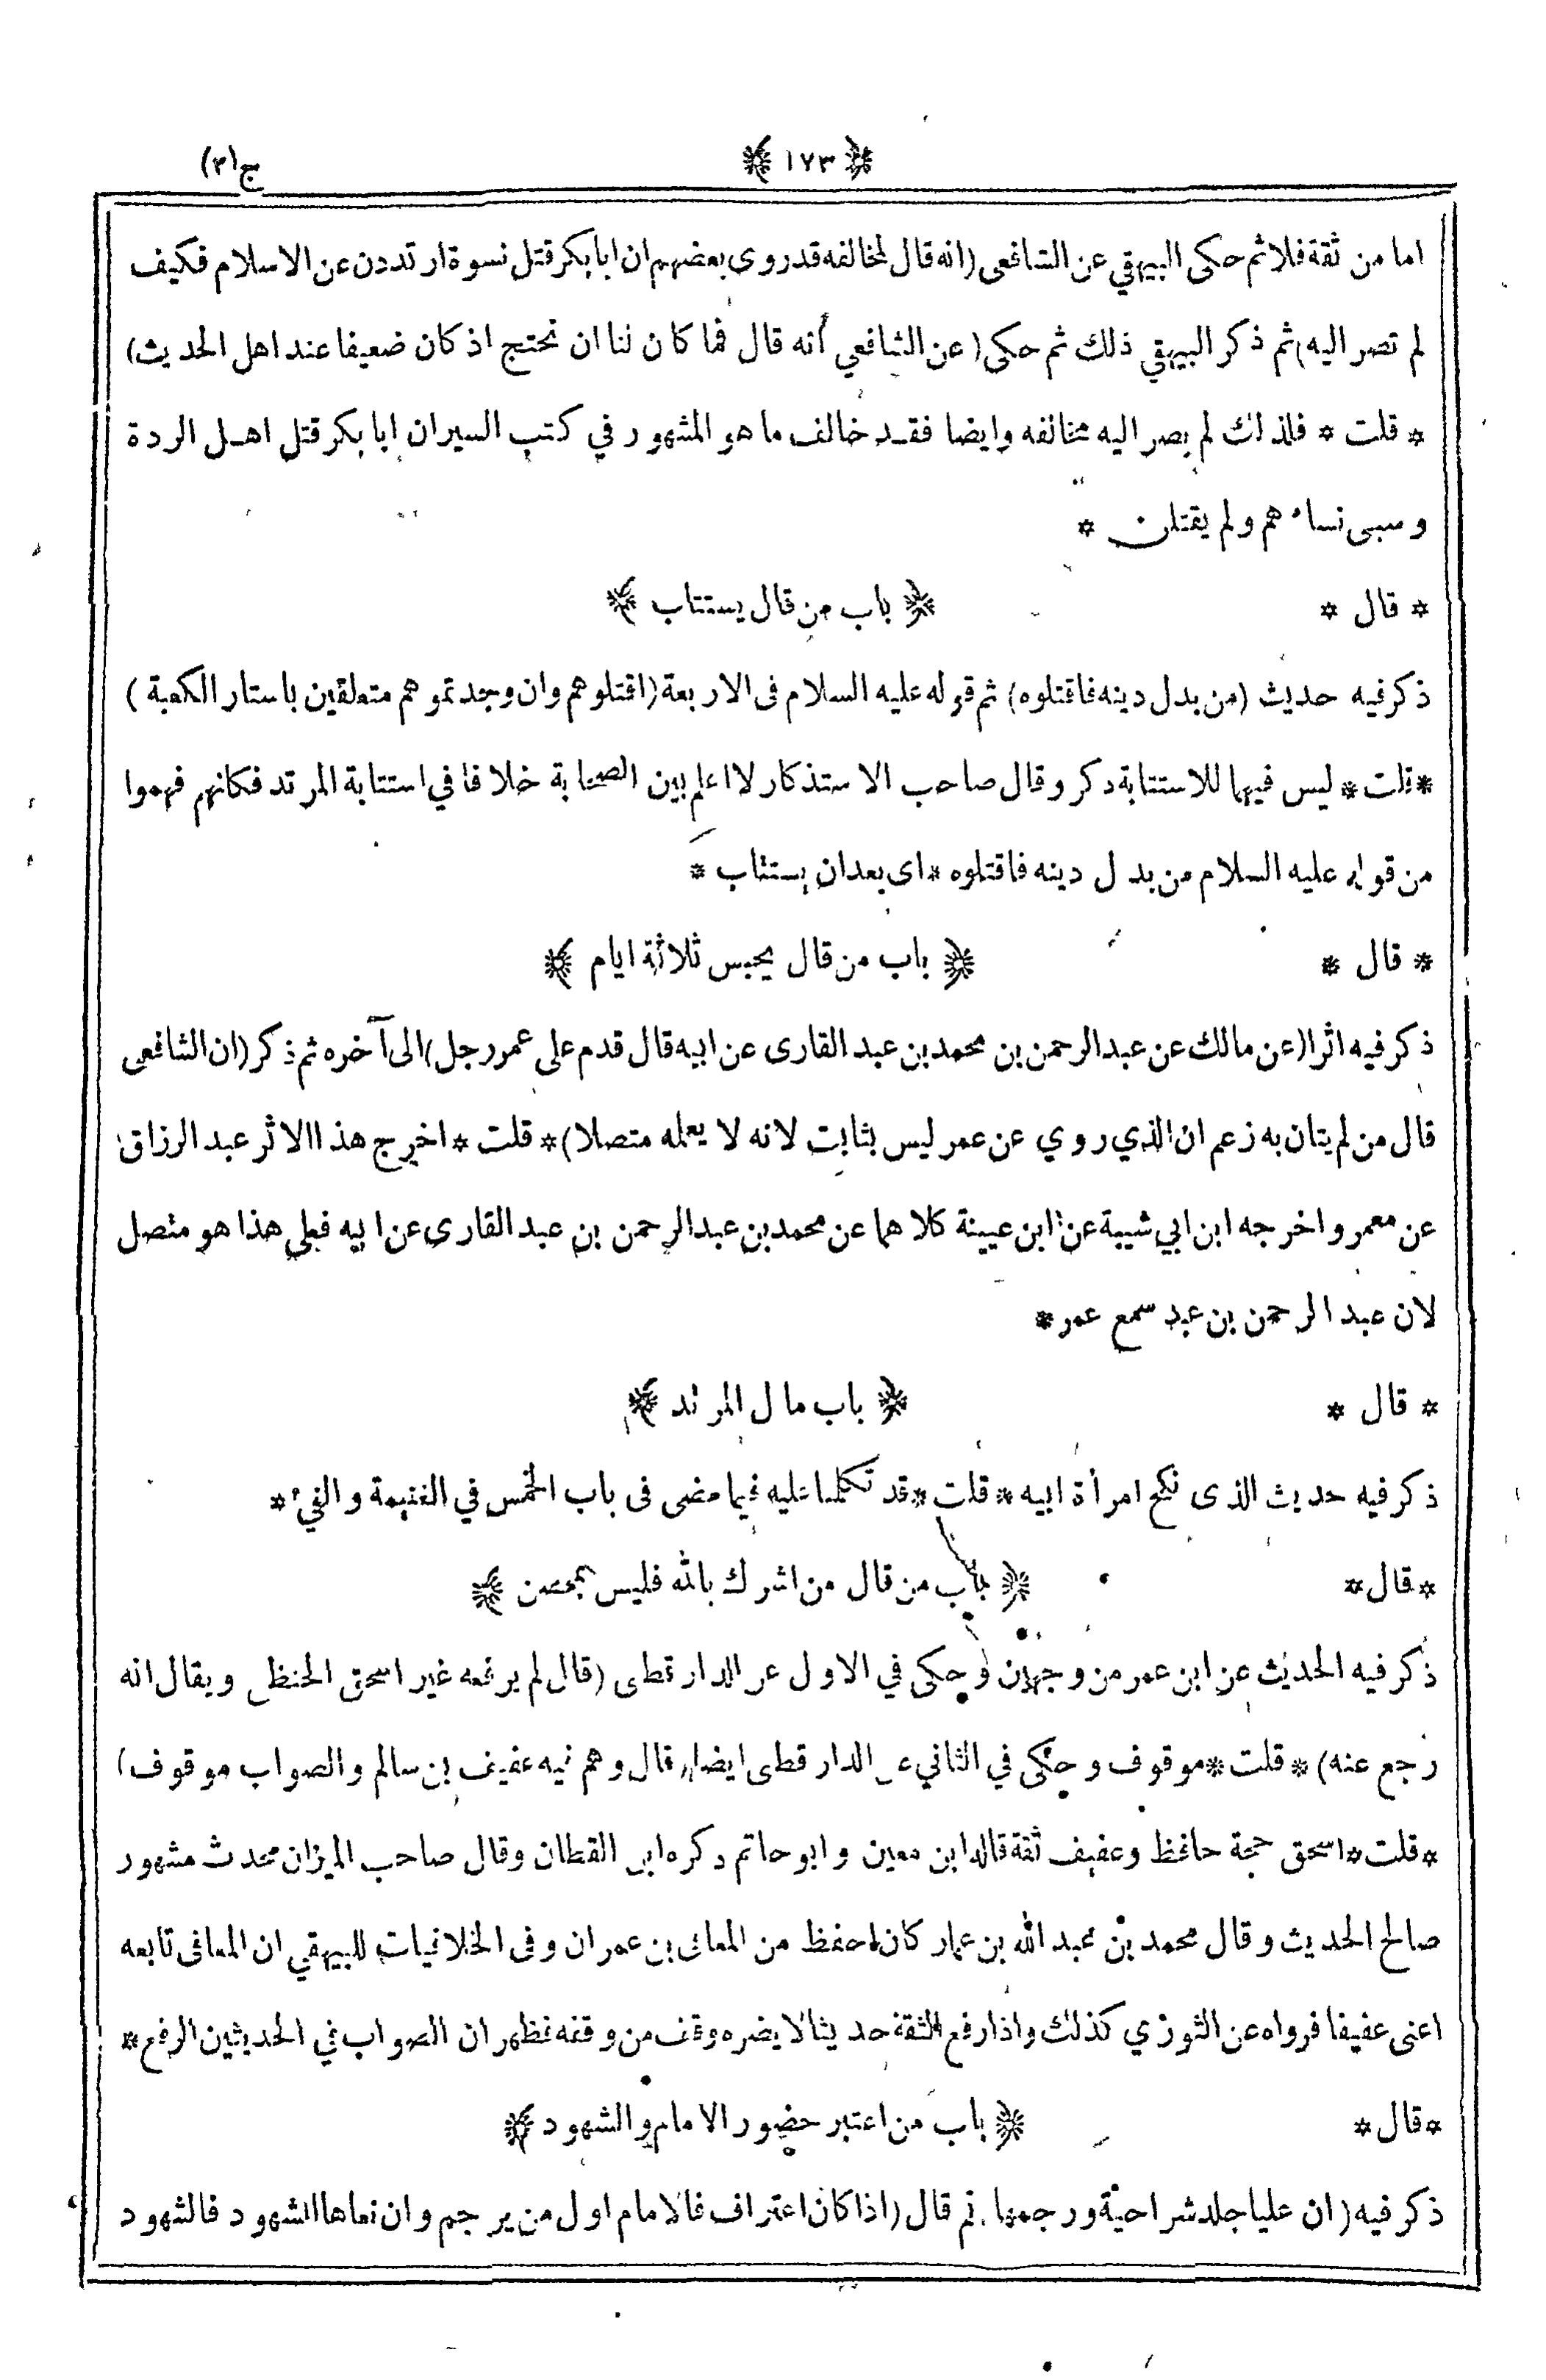 ﴿ ١٧٣ ﴾ ج(٢)
اما من ثقة فلا ثم حكى البيهقي عن الشافعى (انه قال لمخالفه قد روى بعضهم ان ابا بكر قتل نسوة ارتددن عن الاسلام فكيف
لم تصر اليه) ثم ذكر البيهقي ذلك ثم حكى (عن الشافعي أنه قال فما كان لنا ان نحتج اذ كان ضعيفا عند اهل الحديث)
* قلت * فلذلك لم يصر اليه مخالفه وايضا فقد خالف ما هو المشهور في كتب السير ان ابا بكر قتل اهل الردة
وسبى نساءهم ولم يقتلن *
* قال * ﴿ باب من قال يستتاب ﴾
ذكر فيه حديث (من بدل دينه فاقتلوه) ثم قوله عليه السلام فى الاربعة (اقتلوهم وان وجدتموهم متعلقين باستار الكعبة)
* قلت * ليس فيهما للاستتابة ذكر وقال صاحب الاستذكار لا اعلم بين الصحابة خلافا في استتابة المرتد فكانهم فهموا
من قوله عليه السلام من بدل دينه فاقتلوه * اى بعد ان يستتاب *
* قال * ﴿ باب من قال يحبس ثلاثة ايام ﴾
ذكر فيه اثرا (عن مالك عن عبد الرحمن بن محمد بن عبد القارى عن ابيه قال قدم على عمر رجل) الى آخره ثم ذكر (ان الشافعى
قال من لم يتان به زعم ان الذي روي عن عمر ليس بثابت لانه لا يعلمه متصلا) * قلت * اخرج هذا الاثر عبد الرزاق
عن معمر واخرجه ابن ابي شيبة عن ابن عيينة كلاهما عن محمد بن عبد الرحمن بن عبد القارى عن ابيه فعلى هذا هو متصل
لان عبد الرحمن بن عبد سمع عمر *
* قال * ﴿ باب مال المرتد ﴾
ذكر فيه حديث الذى نكح امرأة ابيه * قلت * قد تكلمنا عليه فيما مضى فى باب الخمس في الغنيمة والفيء *
* قال * ﴿ باب من قال من اشرك بالله فليس بمحصن ﴾
ذكر فيه الحديث عن ابن عمر من وجهين وحكى في الاول عن الدارقطى (قال لم يرفعه غير اسحق الحنظلى ويقال انه
رجع عنه) * قلت * موقوف وحكى في الثاني عن الدارقطى ايضا (قال وهم فيه عفيف بن سالم والصواب موقوف)
* قلت * اسحق حجة حافظ وعفيف ثقة قاله ابن معين وابو حاتم ذكره ابن القطان وقال صاحب الميزان محدث مشهور
صالح الحديث وقال محمد بن عبد الله بن عمار كان احفظ من المعافى بن عمران وفى الخلافيات للبيهقي ان المعافى تابعه
اعنى عفيفا فرواه عن الثوري كذلك واذا رفع الثقة حديثا لا يضره وقف من وقفه فظهر ان الصواب في الحديثين الرفع *
* قال * ﴿ باب من اعتبر حضور الامام والشهود ﴾
ذكر فيه (ان عليا جلد شراحة ورجمها ثم قال (اذا كان اعتراف فالامام اول من يرجم وان نعاها الشهود فالشهود